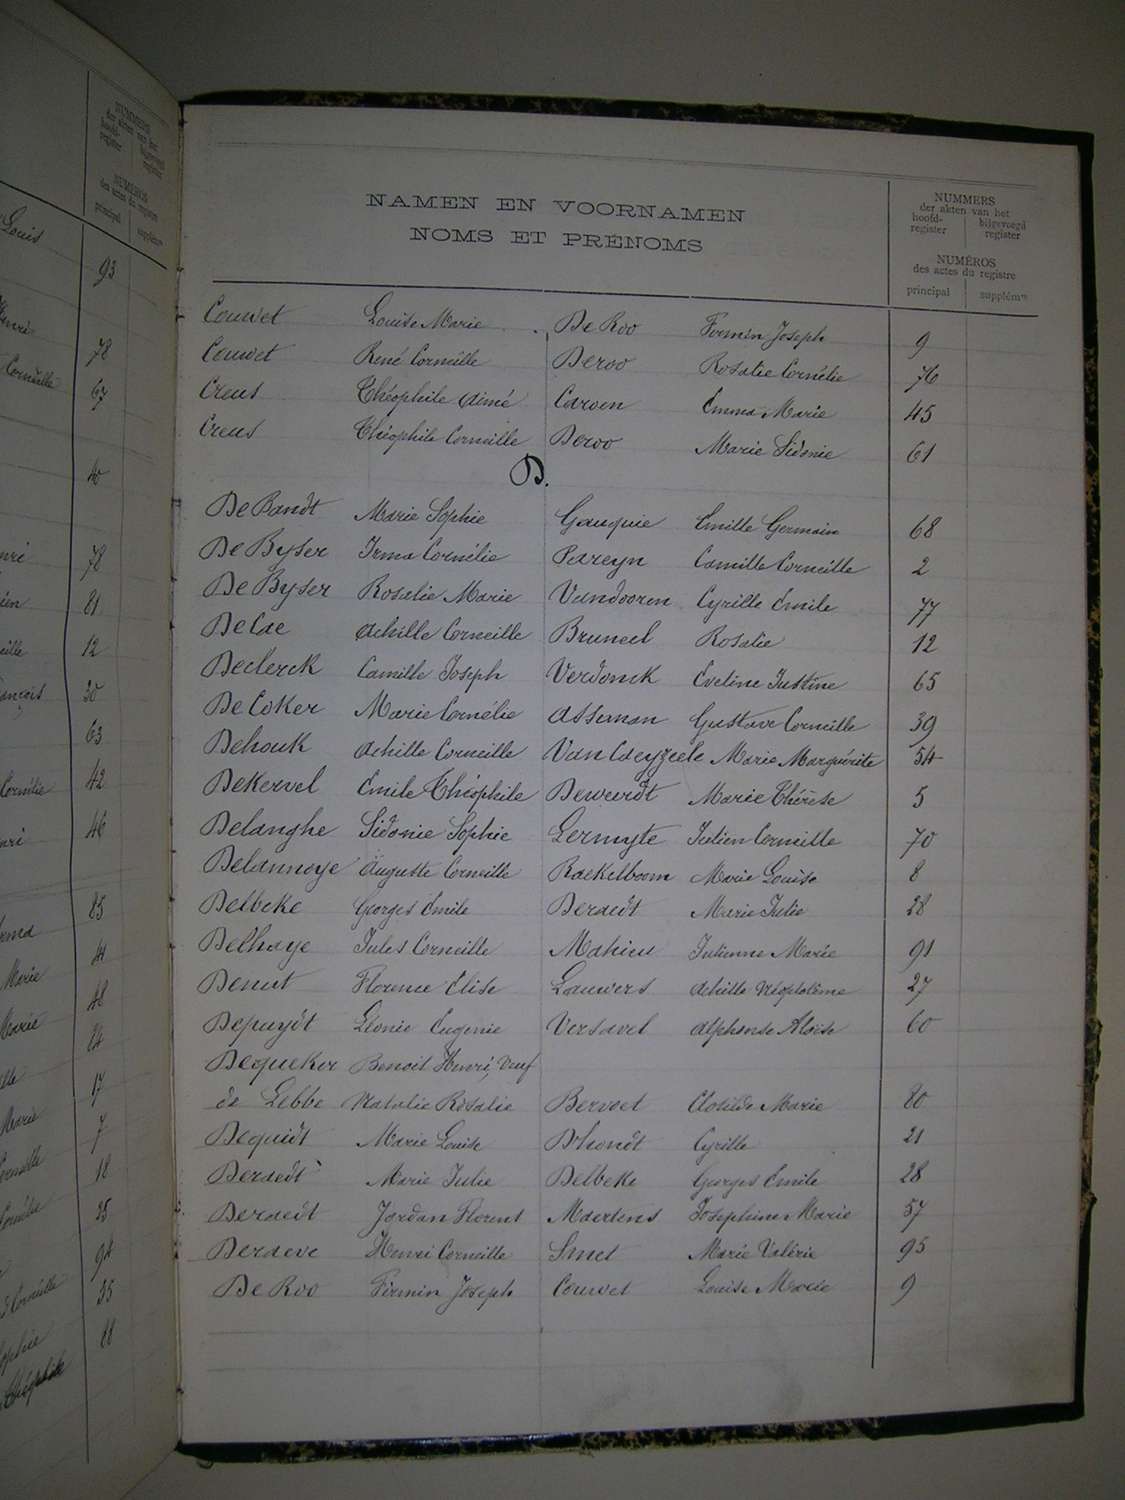 NUMMERS
der akten van het
hoofd-
register
bijgevoegd
register
NUMÉROS
des actes du registre
principal
supplém.re
Louis
93
Henri
78
Corneille
67
40
78
81
12
30
63
Cornélie
42
46
85
4
Marie
48
Marie
84
17
Marie
7
18
35
94
Corneille
35
Sophie
88
Théophile
NAMEN EN VOORNAMEN
NOMS ET PRÉNOMS
NUMMERS
der akten van het
hoofd-
register
bijgevoegd
register
NUMÉROS
des actes du registre
principal
supplém.re
Couvet Louise Marie De Roo Firmin Joseph 9
Couvet René Corneille Deroo Rosalie Cornélie 76
Creus Théophile Aimé Caroen Emma Marie 45
Creus Théophile Corneille Deroo Marie Sidonie 61
D.
De Bandt Marie Sophie Gauquie Emille Germain 68
De Byser Irma Cornélie Pareyn Camille Corneille 2
De Byser Rosalie Marie Vandooren Cyrille Emile 77
De Cae Achille Corneille Bruneel Rosalie 12
Declerck Camille Joseph Verdonck Eveline Justine 65
De Coker Marie Cornélie Asseman Gustave Corneille 39
Dehouk Achille Corneille Van Caeyzeele Marie Marguérite 54
DeKervel Emile Théophile Deweerdt Marie Thérèse 5
Delanghe Sidonie Sophie Lermyte Julien Corneille 70
Delannoye Auguste Corneille Raekelboom Marie Louise 8
Delbeke Georges Emile Deraedt Marie Julie 28
Delhaye Jules Corneille Mahieu Julienne Marie 91
Denut Florence Elise Lauwers Achille Néoptolème 27
Depuydt Léonie Eugenie Versavel Alphonse Aloïse 60
Dequeker Benoit Henri, Veuf
de Lebbe Natalie Rosalie Bervoet Clotilde Marie 80
Dequidt Marie Louise D'hondt Cyrille 21
Deraedt Marie Julie Delbeke Georges Emile 28
Deraedt Jordan Florent Maertens Josephine Marie 57
Deraeve Henri Corneille Smet Marie Valérie 95
De Roo Firmin Joseph Couvet Louise Marie 9